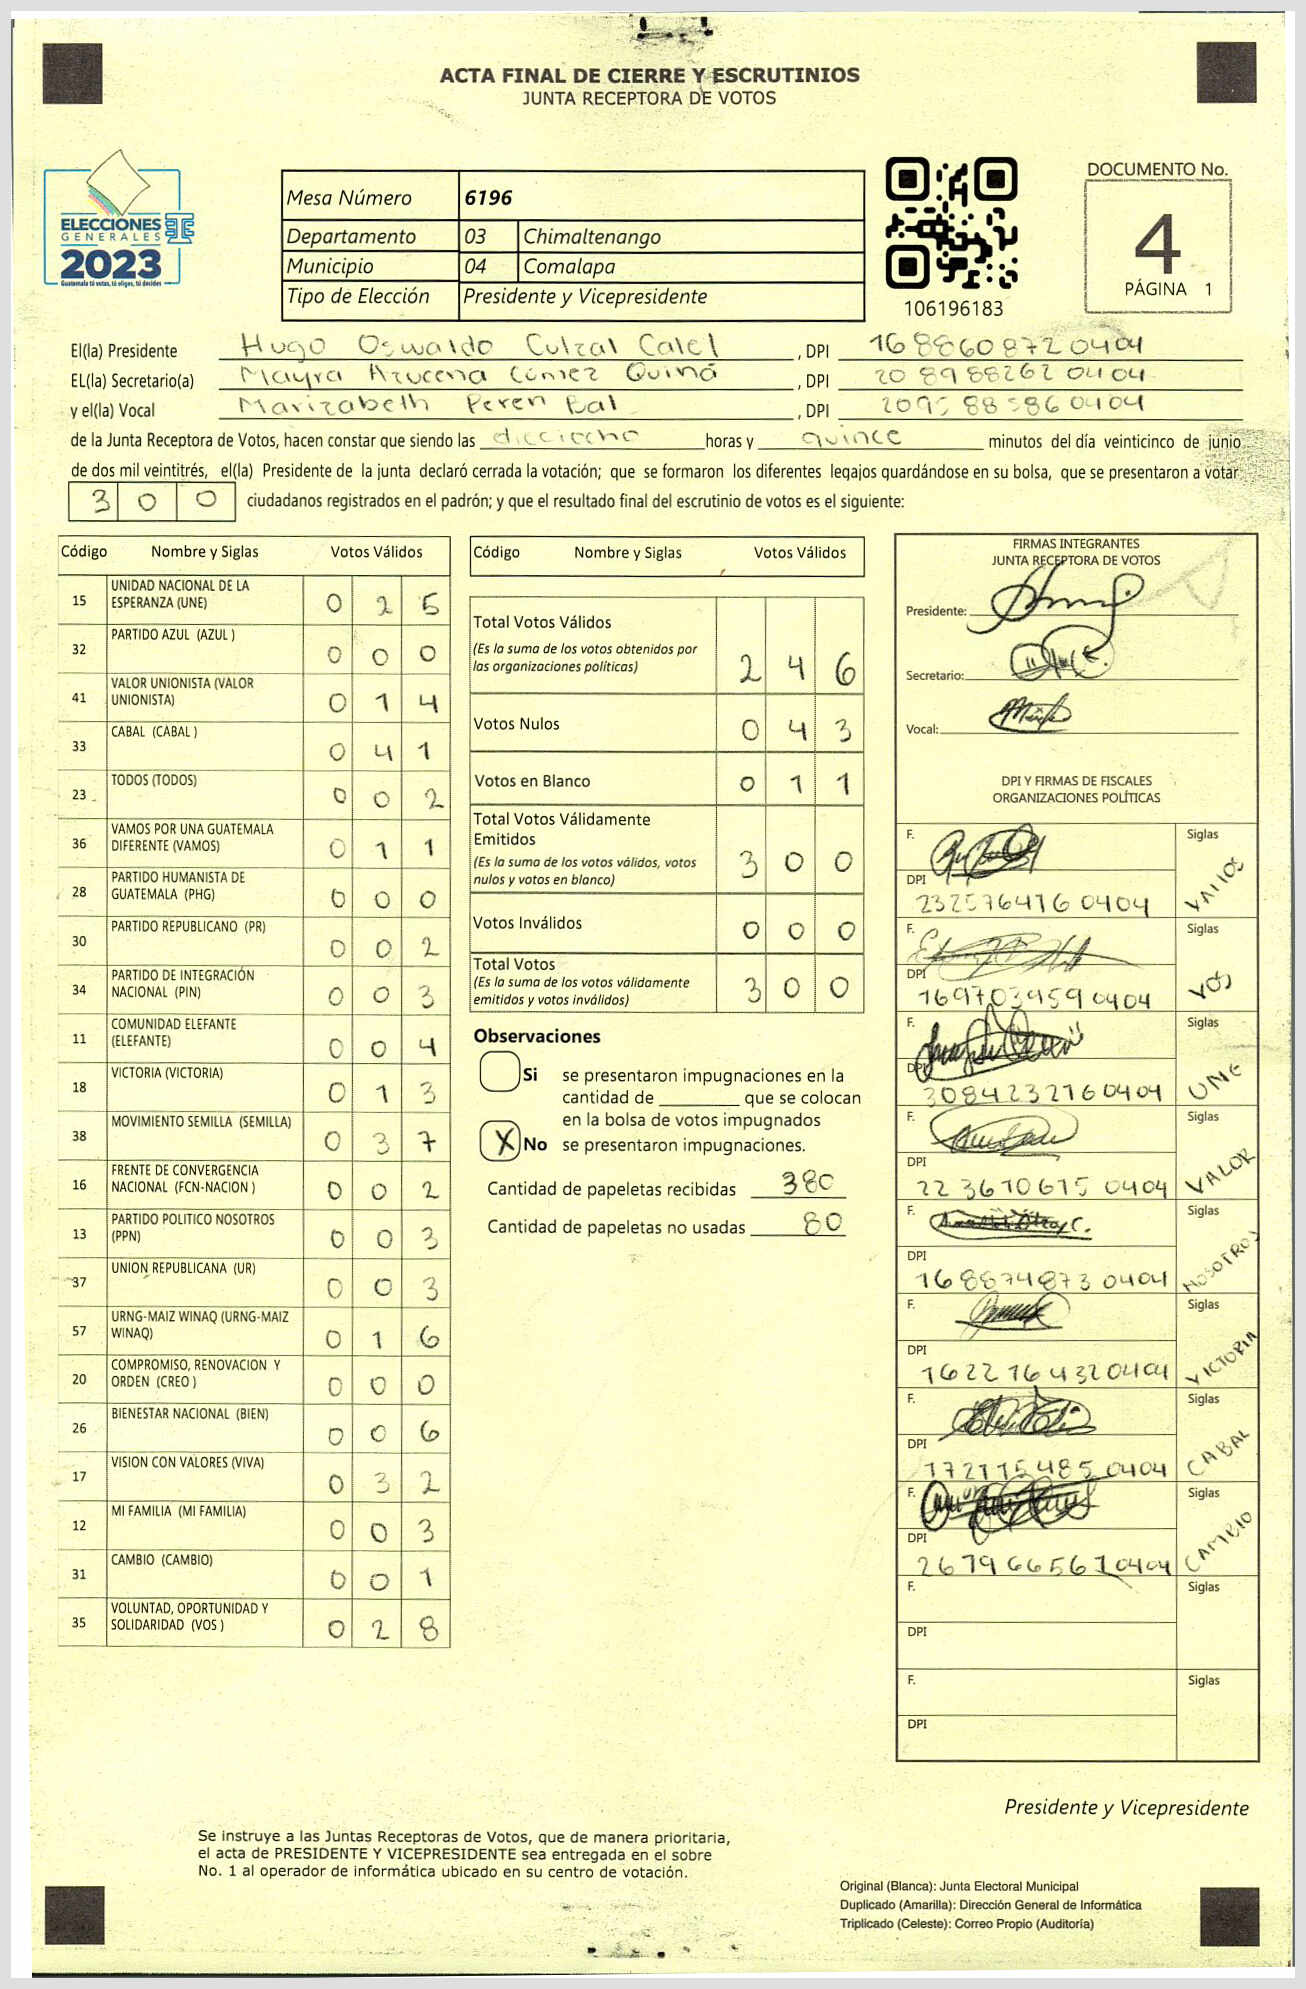 ACTA FINAL DE CIERRE Y ESCRUTINIOS
JUNTA RECEPTORA DE VOTOS
ELECCIONES
GENERALES
2023
Guatemala tú votas, tú eliges, tú decides
Mesa Número 6196
Departamento 03 Chimaltenango
Municipio 04 Comalapa
Tipo de Elección Presidente y Vicepresidente
106196183
DOCUMENTO No.
4
PÁGINA 1
El(la) Presidente Hugo Oswaldo Culzal Calel , DPI 1688608720404
EL(la) Secretario(a) Mayra Azucena Gómez Quiná , DPI 2089882620404
y el(la) Vocal Marizabeth Peren Bal , DPI 2095885860404
de la Junta Receptora de Votos, hacen constar que siendo las dieciocho horas y quince minutos del día veinticinco de junio
de dos mil veintitrés, el(la) Presidente de la junta declaró cerrada la votación; que se formaron los diferentes legajos guardándose en su bolsa, que se presentaron a votar
3 0 0 ciudadanos registrados en el padrón; y que el resultado final del escrutinio de votos es el siguiente:
Código Nombre y Siglas Votos Válidos
15 UNIDAD NACIONAL DE LA ESPERANZA (UNE) 0 2 5
32 PARTIDO AZUL (AZUL ) 0 0 0
41 VALOR UNIONISTA (VALOR UNIONISTA) 0 1 4
33 CABAL (CABAL ) 0 4 1
23 TODOS (TODOS) 0 0 2
36 VAMOS POR UNA GUATEMALA DIFERENTE (VAMOS) 0 1 1
28 PARTIDO HUMANISTA DE GUATEMALA (PHG) 0 0 0
30 PARTIDO REPUBLICANO (PR) 0 0 2
34 PARTIDO DE INTEGRACIÓN NACIONAL (PIN) 0 0 3
11 COMUNIDAD ELEFANTE (ELEFANTE) 0 0 4
18 VICTORIA (VICTORIA) 0 1 3
38 MOVIMIENTO SEMILLA (SEMILLA) 0 3 7
16 FRENTE DE CONVERGENCIA NACIONAL (FCN-NACION ) 0 0 2
13 PARTIDO POLITICO NOSOTROS (PPN) 0 0 3
37 UNION REPUBLICANA (UR) 0 0 3
57 URNG-MAIZ WINAQ (URNG-MAIZ WINAQ) 0 1 6
20 COMPROMISO, RENOVACION Y ORDEN (CREO ) 0 0 0
26 BIENESTAR NACIONAL (BIEN) 0 0 6
17 VISION CON VALORES (VIVA) 0 3 2
12 MI FAMILIA (MI FAMILIA) 0 0 3
31 CAMBIO (CAMBIO) 0 0 1
35 VOLUNTAD, OPORTUNIDAD Y SOLIDARIDAD (VOS ) 0 2 8
Código Nombre y Siglas Votos Válidos
Total Votos Válidos 2 4 6
(Es la suma de los votos obtenidos por
las organizaciones políticas)
Votos Nulos 0 4 3
Votos en Blanco 0 1 1
Total Votos Válidamente
Emitidos 3 0 0
(Es la suma de los votos válidos, votos
nulos y votos en blanco)
Votos Inválidos 0 0 0
Total Votos 3 0 0
(Es la suma de los votos válidamente
emitidos y votos inválidos)
Observaciones
Si se presentaron impugnaciones en la
cantidad de ________ que se colocan
en la bolsa de votos impugnados
X No se presentaron impugnaciones.
Cantidad de papeletas recibidas 380
Cantidad de papeletas no usadas 80
FIRMAS INTEGRANTES
JUNTA RECEPTORA DE VOTOS
Presidente:
Secretario:
Vocal:
DPI Y FIRMAS DE FISCALES
ORGANIZACIONES POLÍTICAS
F. Siglas
DPI 2325764160404 VAMOS
F. Siglas
DPI 1697039590404 VOS
F. Siglas
DPI 3084232160404 UNE
F. Siglas
DPI 2236706150404 VALOR
F. Siglas
DPI 1688748730404 NOSOTROS
F. Siglas
DPI 1622764320404 VICTORIA
F. Siglas
DPI 1721154850404 CABAL
F. Siglas
DPI 2679665610404 CAMBIO
F. Siglas
DPI
F. Siglas
DPI
Presidente y Vicepresidente
Se instruye a las Juntas Receptoras de Votos, que de manera prioritaria,
el acta de PRESIDENTE Y VICEPRESIDENTE sea entregada en el sobre
No. 1 al operador de informática ubicado en su centro de votación.
Original (Blanca): Junta Electoral Municipal
Duplicado (Amarilla): Dirección General de Informática
Triplicado (Celeste): Correo Propio (Auditoría)